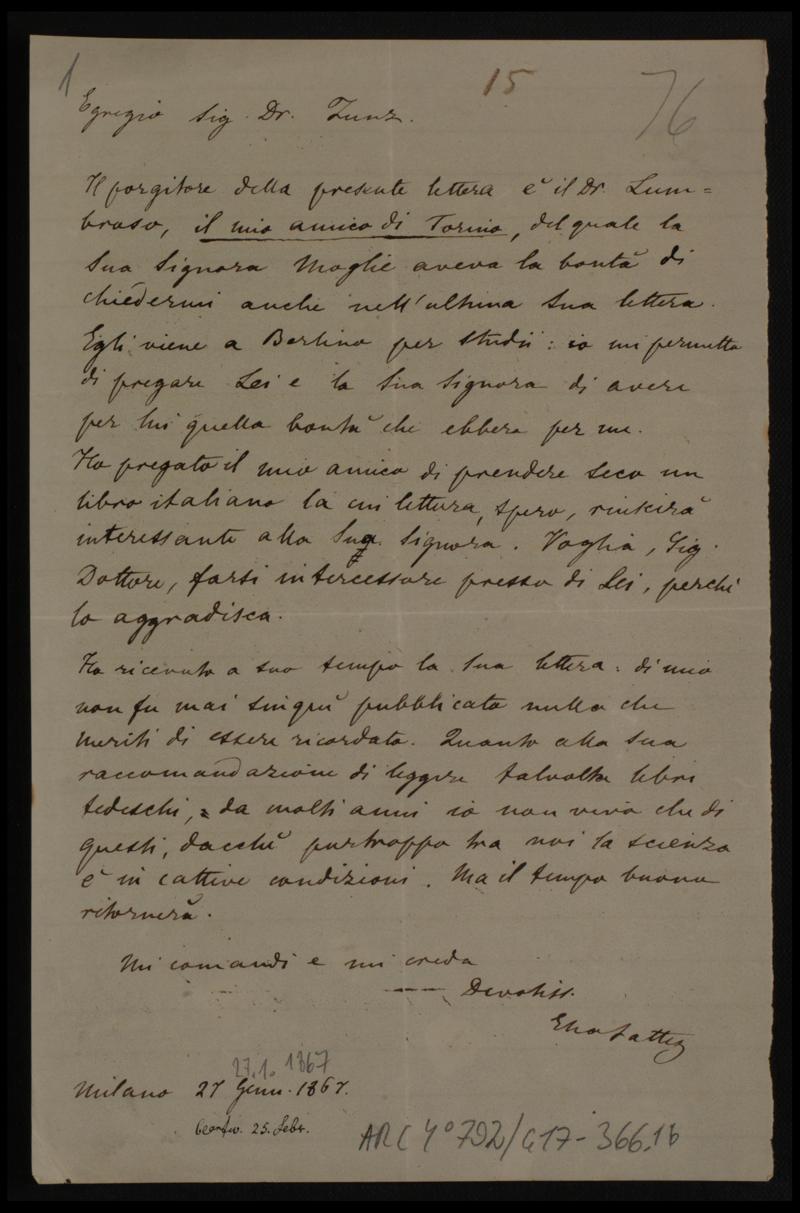 1
15
76
Egregio Sig. Dr. Zunz.
Il porgitore della presente lettera è il Dr. Lum=
broso, il mio amico di Torino, del quale la
Sua Signora Moglie aveva la bontà di
chiedermi anche nell'ultima Sua lettera.
Egli viene a Berlino per studii: io mi permetto
di pregare Lei e la Sua Signora di avere
per lui quella bontà che ebbero per me.
Ho pregato il mio amico di prendere seco un
libro italiano la cui lettura, spero, riuscirà
interessante alla Sua Signora. Voglia, Sig.
Dottore, farsi intercessore presso di Lei, perchè
lo aggradisca.
Ho ricevuto a suo tempo la Sua lettera: di mio
non fu mai sinqui pubblicato nulla che
meriti di essere ricordato. Quanto alla Sua
raccomandazione di leggere talvolta libri
tedeschi, da molti anni io non vivo che di
questi, dacchè purtroppo tra noi la scienza
è in cattive condizioni. Ma il tempo buono
ritornerà.
Mi comandi e mi creda
Devotiss.
Elia Lattes
27.1.1867
Milano 27 Genn. 1867.
beantw. 25. Febr.
ARC 4° 792/G17-366.1b